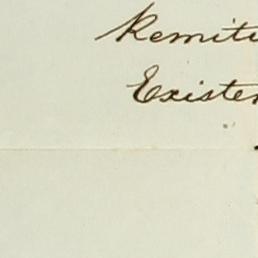 Remitt
Existen